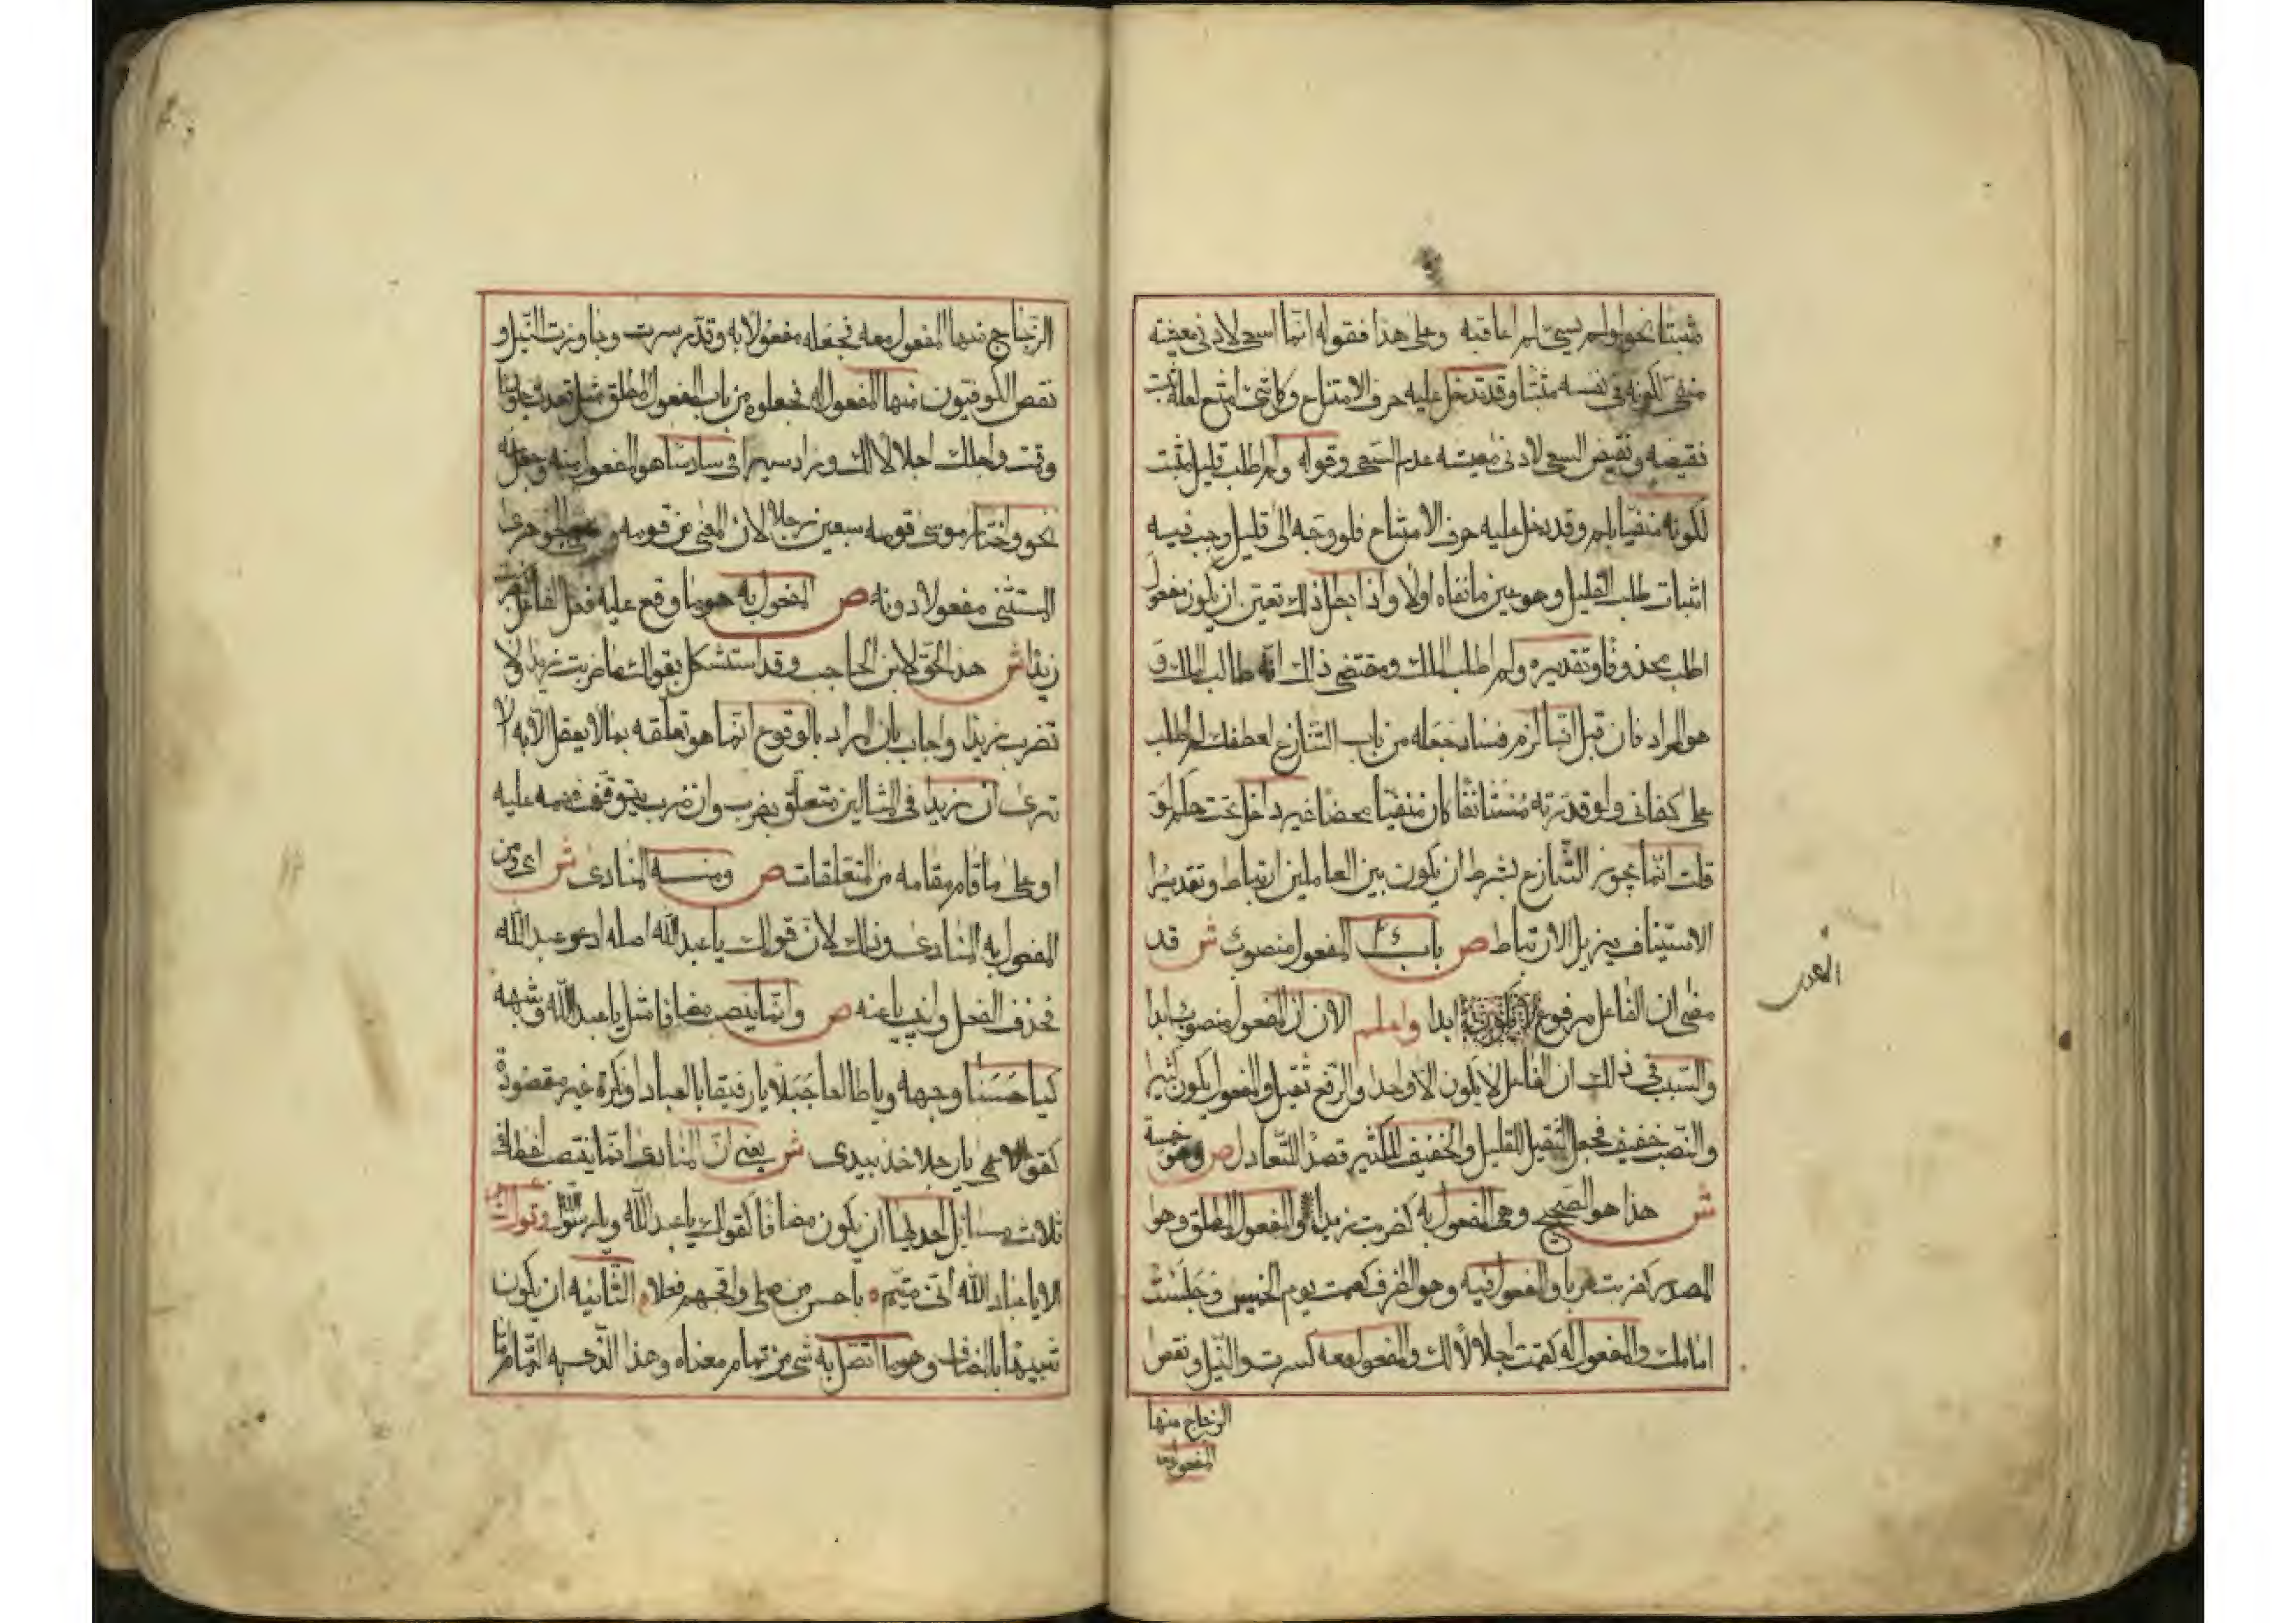 مثبتا نحو لو لم يسئ لم اعاقبه وعلى هذا فقوله انما اسعى لادنى معيشة
منفى لكونه فى نفسه مثبتا وقد تدخل عليه حرف الامتناع وكل شئ امتنع لعلة ثبت
نقيضه ونقيض السعى لادنى معيشه عدم السعى وقوله ولم اطلب قليل مثبت
لكونه منفيا بلم وقد دخل عليه حرف الامتناع فلو وجه الى قليل وجب فيه
اثبات طلب القليل وهو عين ما نفاه اولا واذا بطل ذلك تعين ان يكون مفعول
اطلب محذوفا وتقديره ولم اطلب الملك ومقتضى ذلك انه طالب للملك و
هو المراد فان قيل انما لزم فساد جعله من باب التنازع لعطفك لم اطلب
على كفانى ولو قدرته مستانفا كان منفيا محضا غير داخل تحت حكم لو
قلت انما يجوز التنازع بشرط ان يكون بين العاملين ارتباط وتقدير
الاستيناف يزيل الارتباط ص باب المفعول منصوب ش قد
مضى ان الفاعل مرفوع ابدا واعلم الان ان المفعول منصوب ابدا
والسبب فى ذلك ان الفاعل لا يكون الا واحدا والرفع ثقيل والمفعول يكون كثيرا
والنصب خفيف فجعل الثقيل للقليل والخفيف للكثير قصدا للتعادل ص وهو خمسة
ش هذا هو الصحيح وهى المفعول به كضربت زيدا والمفعول المطلق وهو
المصدر كضربت ضربا والمفعول فيه وهو الظرف كصمت يوم الخميس وجلست
امامك والمفعول له كقمت اجلالا لك والمفعول معه كسرت والنيل ونقص
الزجاج منها
المفعول معه
الزجاج منها المفعول معه فجعله مفعولا به وقدر سرت وجاوزت النيل و
نقص الكوفيون منها المفعول له فجعلوه من باب المفعول المطلق مثل قعدت جلوسا
وقمت واجلك اجلالا لك وزاد سيرافى سادسا هو المفعول منه وجعل منه
نحو واختار موسى قومه سبعين رجلا لان المعنى من قومه و الجوهرى
المستثنى مفعولا دونه ص المفعول به هو ما وقع عليه فعل الفاعل كضربت
زيدا ش هذا الحد لابن الحاجب وقد استشكل بقولك ما ضربت زيدا ولا
تضرب زيدا واجاب بان المراد بالوقوع انما هو تعلقه بما لا يعقل الا به الا
ترى ان زيدا فى المثالين متعلق بضرب وان ضرب يتوقف فهمه عليه
او على ما قام مقامه من المتعلقات ص ومنه المنادى ش اى ومن
المفعول به المنادى وذلك لان قولك يا عبد الله اصله ادعو عبد الله
فحذف الفعل وانيب يا عنه ص وانما ينصب مضافا مثل يا عبد الله وشبهه
كيا حسنا وجهه ويا طالعا جبلا يا رفيقا بالعباد او نكرة غير مقصودة
كقول الاعمى يا رجلا خذ بيدى ش يعنى ان المنادى انما ينتصب لفظا فى
ثلاث مسايل احديها ان يكون مضافا كقولك يا عبد الله ويا رسول الله وقول الشاعر
الا يا عباد الله انى متيم ه باحسن من صلى واقبحهم فعلا ه الثانيه ان يكون
شبيها بالمضاف وهو ما اتصل به شى من تمام معناه وهذا الذى به التمام اما